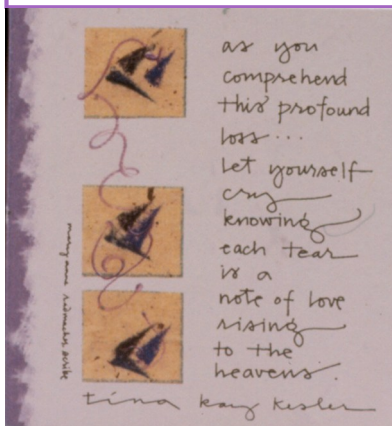 as you
comprehend
this profound
loss...
let yourself
cry
knowing
each tear
is a
note of love
rising
to the
heavens.
tina kay kesler
mary anne radmacher scribe